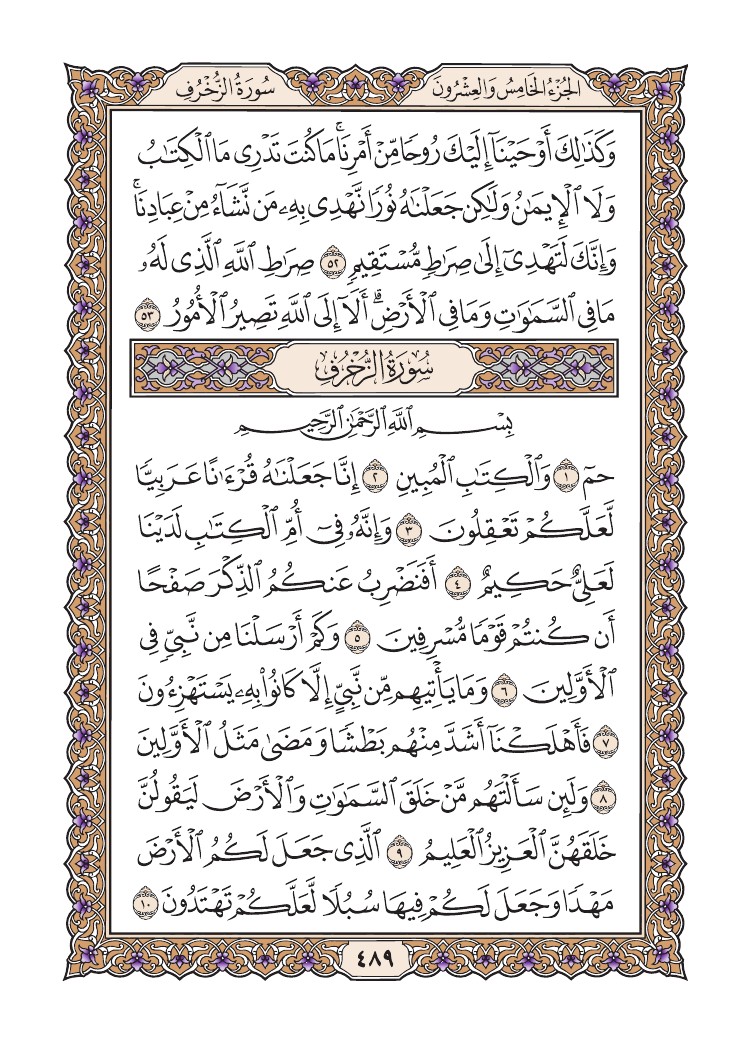 الجُزْءُ الخَامِسُ وَالعِشْرُونَ
سُورَةُ الزُّخْرُفِ
وَكَذَٰلِكَ أَوْحَيْنَآ إِلَيْكَ رُوحًا مِّنْ أَمْرِنَاۚ مَا كُنتَ تَدْرِى مَا ٱلْكِتَٰبُ
وَلَا ٱلْإِيمَٰنُ وَلَٰكِن جَعَلْنَٰهُ نُورًا نَّهْدِى بِهِۦ مَن نَّشَآءُ مِنْ عِبَادِنَاۚ
وَإِنَّكَ لَتَهْدِىٓ إِلَىٰ صِرَٰطٍ مُّسْتَقِيمٍ ٥٢ صِرَٰطِ ٱللَّهِ ٱلَّذِى لَهُۥ
مَا فِى ٱلسَّمَٰوَٰتِ وَمَا فِى ٱلْأَرْضِۗ أَلَآ إِلَى ٱللَّهِ تَصِيرُ ٱلْأُمُورُ ٥٣
سُورَةُ الزُّخْرُفِ
بِسْمِ ٱللَّهِ ٱلرَّحْمَٰنِ ٱلرَّحِيمِ
حمٓ ١ وَٱلْكِتَٰبِ ٱلْمُبِينِ ٢ إِنَّا جَعَلْنَٰهُ قُرْءَٰنًا عَرَبِيًّا
لَّعَلَّكُمْ تَعْقِلُونَ ٣ وَإِنَّهُۥ فِىٓ أُمِّ ٱلْكِتَٰبِ لَدَيْنَا
لَعَلِىٌّ حَكِيمٌ ٤ أَفَنَضْرِبُ عَنكُمُ ٱلذِّكْرَ صَفْحًا
أَن كُنتُمْ قَوْمًا مُّسْرِفِينَ ٥ وَكَمْ أَرْسَلْنَا مِن نَّبِىٍّ فِى
ٱلْأَوَّلِينَ ٦ وَمَا يَأْتِيهِم مِّن نَّبِىٍّ إِلَّا كَانُوا۟ بِهِۦ يَسْتَهْزِءُونَ
٧ فَأَهْلَكْنَآ أَشَدَّ مِنْهُم بَطْشًا وَمَضَىٰ مَثَلُ ٱلْأَوَّلِينَ
٨ وَلَئِن سَأَلْتَهُم مَّنْ خَلَقَ ٱلسَّمَٰوَٰتِ وَٱلْأَرْضَ لَيَقُولُنَّ
خَلَقَهُنَّ ٱلْعَزِيزُ ٱلْعَلِيمُ ٩ ٱلَّذِى جَعَلَ لَكُمُ ٱلْأَرْضَ
مَهْدًا وَجَعَلَ لَكُمْ فِيهَا سُبُلًا لَّعَلَّكُمْ تَهْتَدُونَ ١٠
٤٨٩